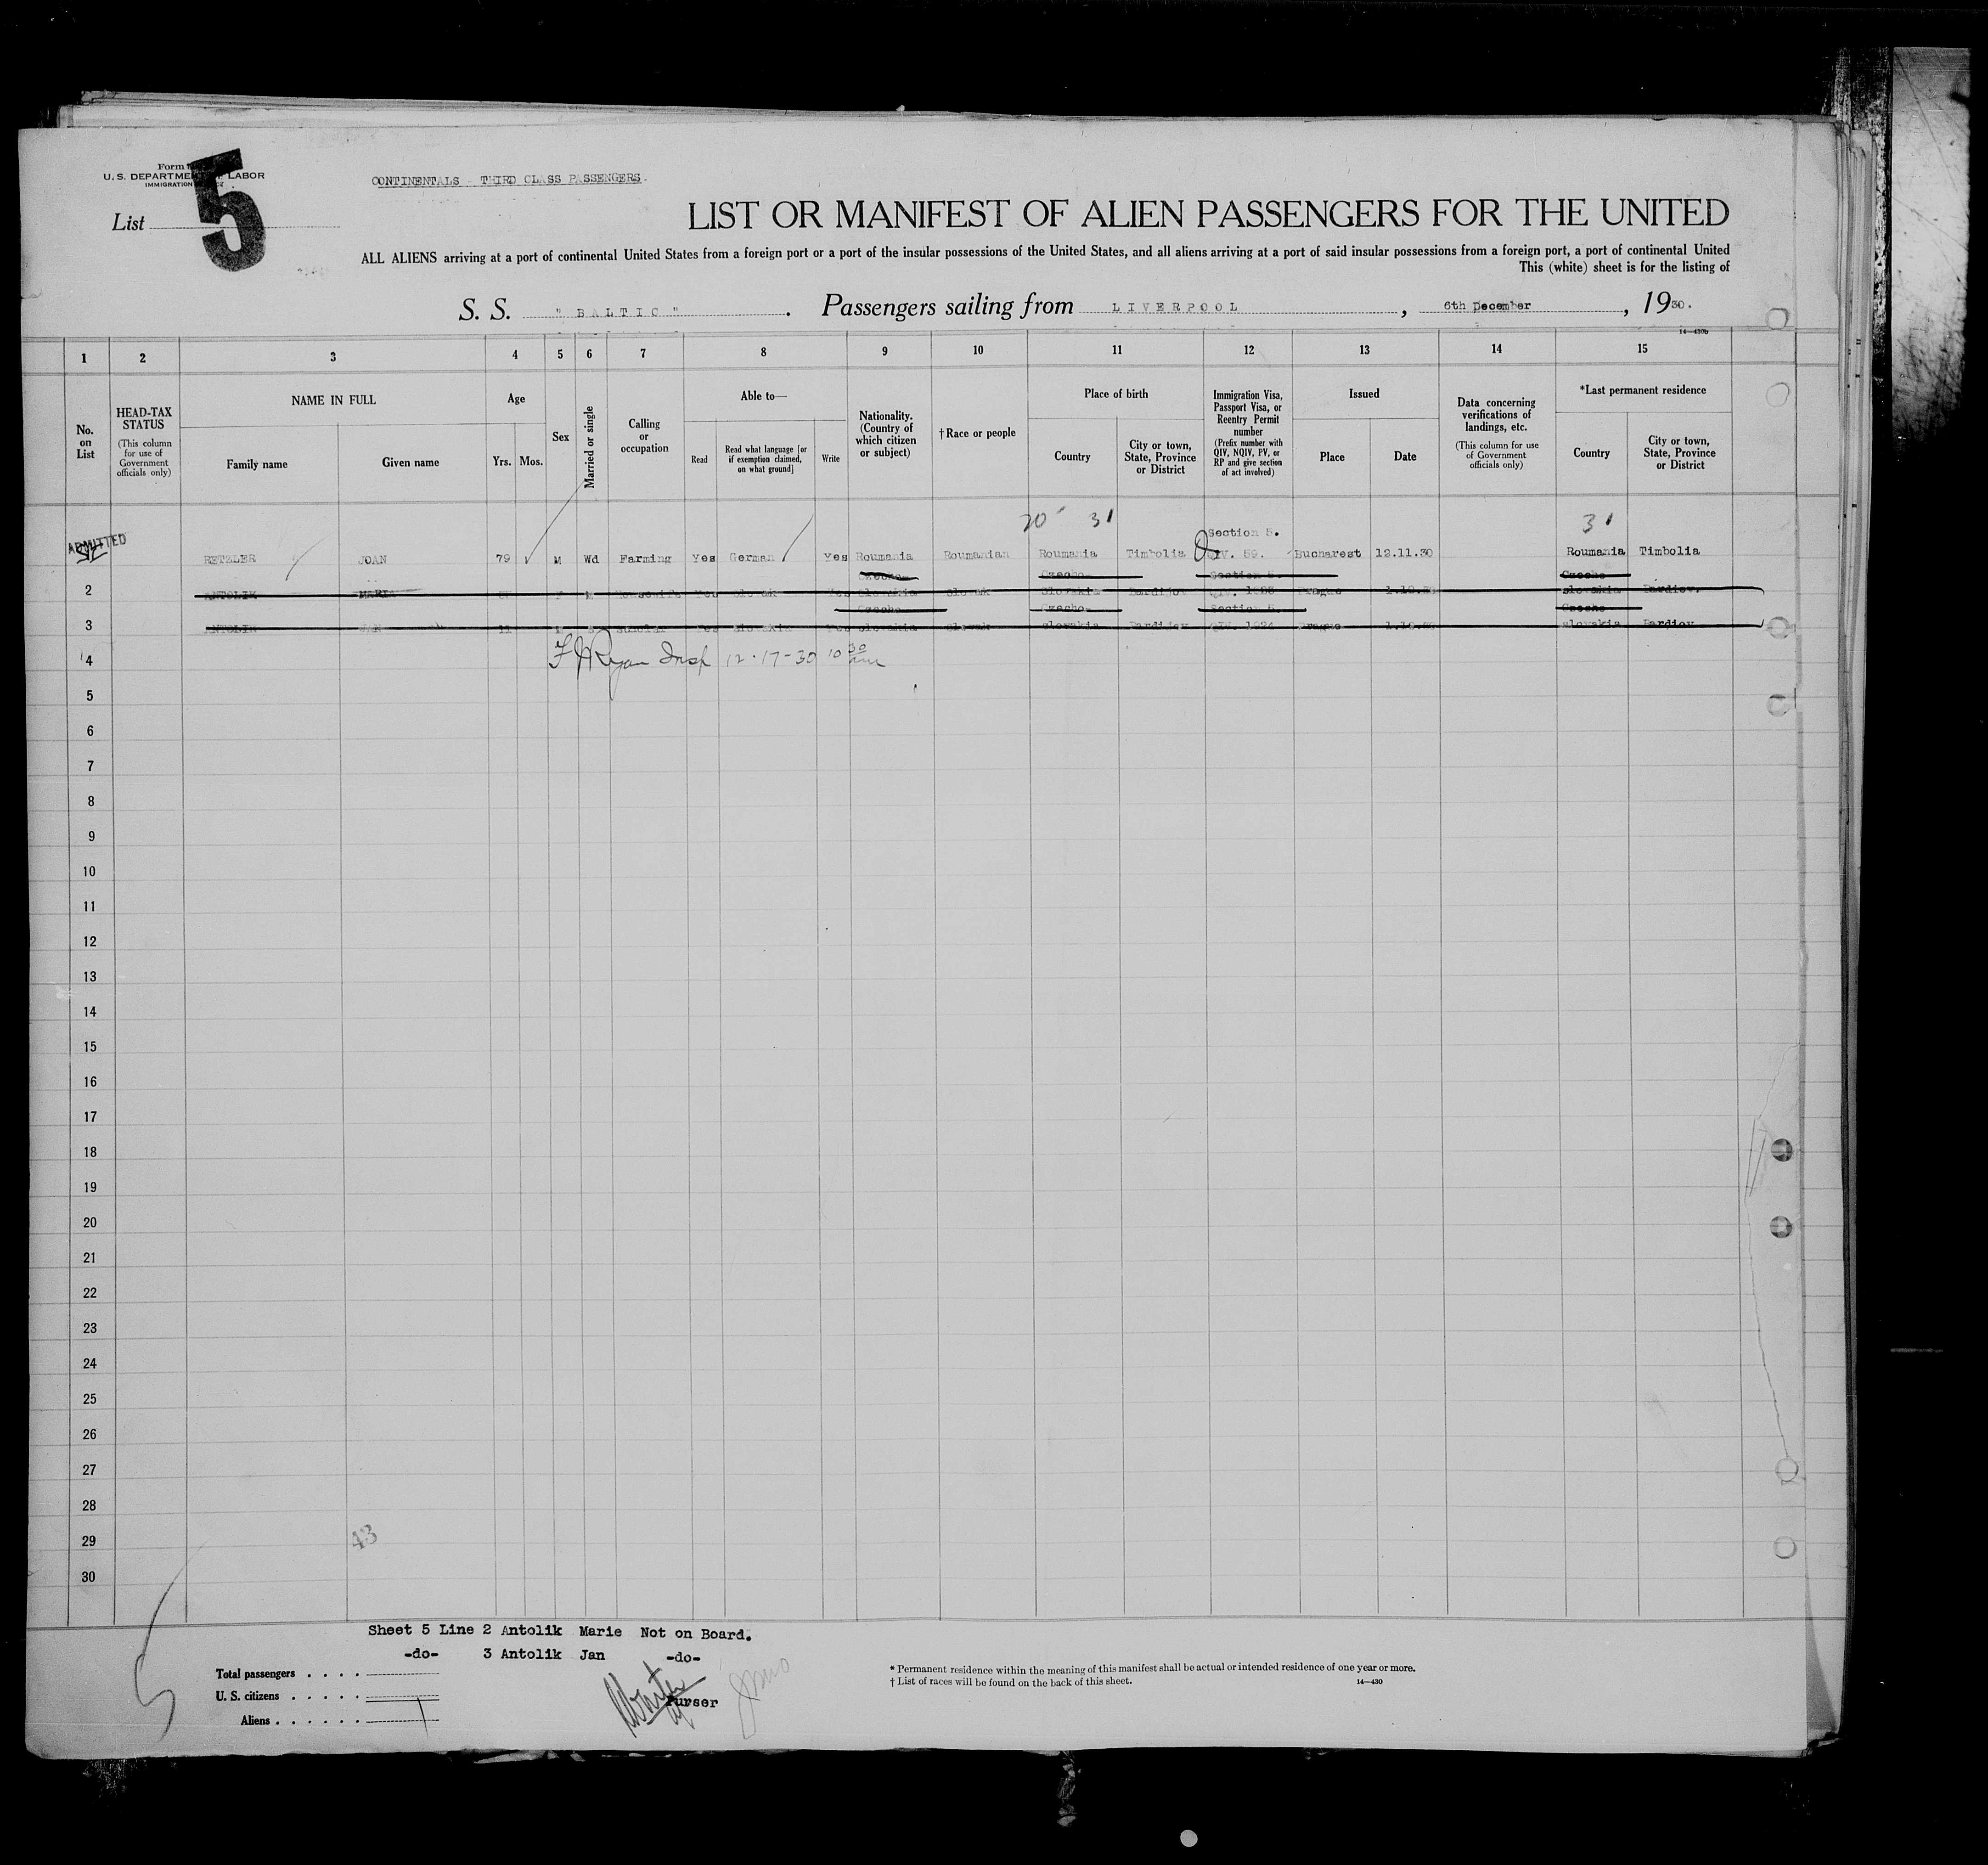 Form
U. S. DEPARTMENT OF LABOR
IMMIGRATION
List 5
CONTINENTALS - THIRD CLASS PASSENGERS.
LIST OR MANIFEST OF ALIEN PASSENGERS FOR THE UNITED
ALL ALIENS arriving at a port of continental United States from a foreign port or a port of the insular possessions of the United States, and all aliens arriving at a port of said insular possessions from a foreign port, a port of continental United
This (white) sheet is for the listing of
S. S. " BALTIC " . Passengers sailing from LIVERPOOL , 6th December , 1930.
14—430b
1 2 3 4 5 6 7 8 9 10 11 12 13 14 15
No. on List
HEAD-TAX STATUS (This column for use of Government officials only)
NAME IN FULL
Family name Given name
Age
Yrs. Mos.
Sex
Married or single
Calling or occupation
Able to—
Read Read what language [or if exemption claimed, on what ground] Write
Nationality. (Country of which citizen or subject)
†Race or people
Place of birth
Country City or town, State, Province or District
Immigration Visa, Passport Visa, or Reentry Permit number (Prefix number with QIV, NQIV, PV, or RP and give section of act involved)
Issued
Place Date
Data concerning verifications of landings, etc. (This column for use of Government officials only)
*Last permanent residence
Country City or town, State, Province or District
20 31 31
Section 5.
ADMITTED RETZLER JOAN 79 M Wd Farming Yes German Yes Roumania Roumanian Roumania Timbolia QIV. 59. Bucharest 12.11.30 Roumania Timbolia
Czecho- Czecho- Section 5. Czecho-
2 ANTOLIK MARIE Housewife Yes Slovak Yes Slovakia Slovak Slovakia Bardijov QIV. Prague Slovakia Bardiov.
Czecho- Czecho- Section 5. Czecho-
3 ANTOLIK JAN 11 M S Scholar Yes Slovakia Yes Slovakia Slovak Slovakia Bardijov QIV. 1924 Prague Slovakia Bardiov
4 F J Ryan Insp 12-17-30 10 30 am
5
6
7
8
9
10
11
12
13
14
15
16
17
18
19
20
21
22
23
24
25
26
27
28
29
30
43
5
Sheet 5 Line 2 Antolik Marie Not on Board.
-do- 3 Antolik Jan -do-
Total passengers . . . .
U. S. citizens . . . . .
Aliens . . . . . . 1
Purser
* Permanent residence within the meaning of this manifest shall be actual or intended residence of one year or more.
† List of races will be found on the back of this sheet. 14—430